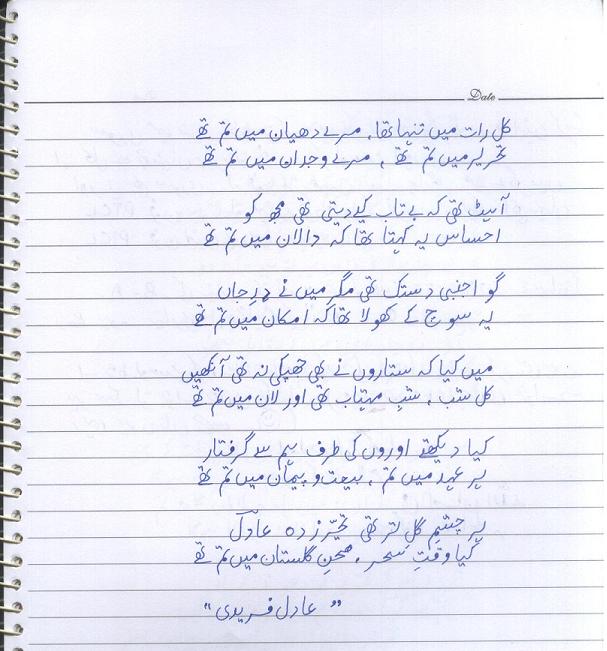 Date
کل رات میں تنہا تھا، مرے دھیان میں تم تھے
تحریر میں تم تھے، مرے وجدان میں تم تھے
آہٹ تھی کہ بے تاب کیے دیتی تھی مجھ کو
احساس یہ کہتا تھا کہ دالان میں تم تھے
گو اجنبی دستک تھی مگر میں نے درِ جاں
یہ سوچ کے کھولا تھا کہ امکان میں تم تھے
میں کیا کہ ستاروں نے بھی جھپکی نہ تھی آنکھیں
کل شب، شبِ مہتاب تھی اور لان میں تم تھے
کیا دیکھتے اوروں کی طرف ہم سے گرفتار
ہر عہد میں تم، بیعت و پیمان میں تم تھے
ہر چشمِ گل تر تھی تحیّر زدہ عادلؔ
کیا وقتِ سحر، صحنِ گلستان میں تم تھے
"عادل فریدی"